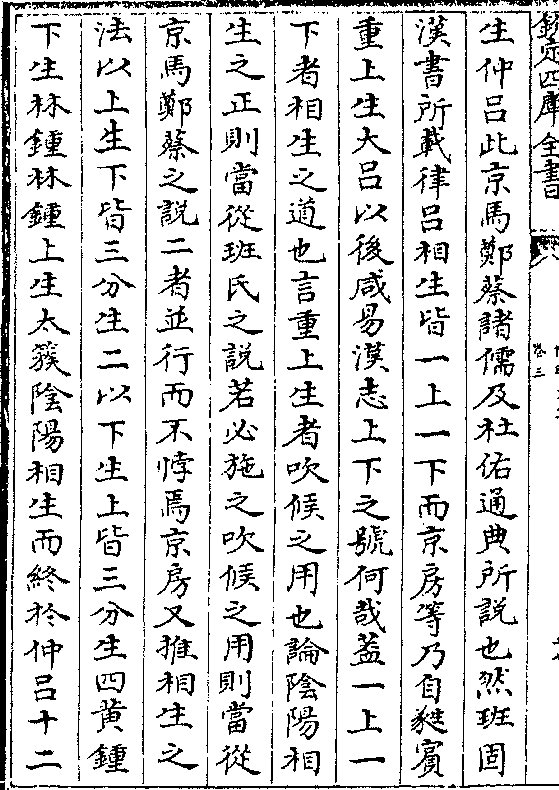 欽定四庫全書
卷三
生仲吕此京馬鄭蔡諸儒及杜佑通典所說也然班固
漢書所載律吕相生皆一上一下而京房等乃自蕤賓
重上生大吕以後咸易漢志上下之號何哉葢一上一
下者相生之道也言重上生者吹候之用也論陰陽相
生之正則當從班氏之說若必施之吹候之用則當從
京馬鄭蔡之說二者並行而不悖焉京房又推相生之
法以上生下皆三分生二以下生上皆三分生四黄鍾
下生林鍾林鍾上生太蔟陰陽相生而終於仲吕十二